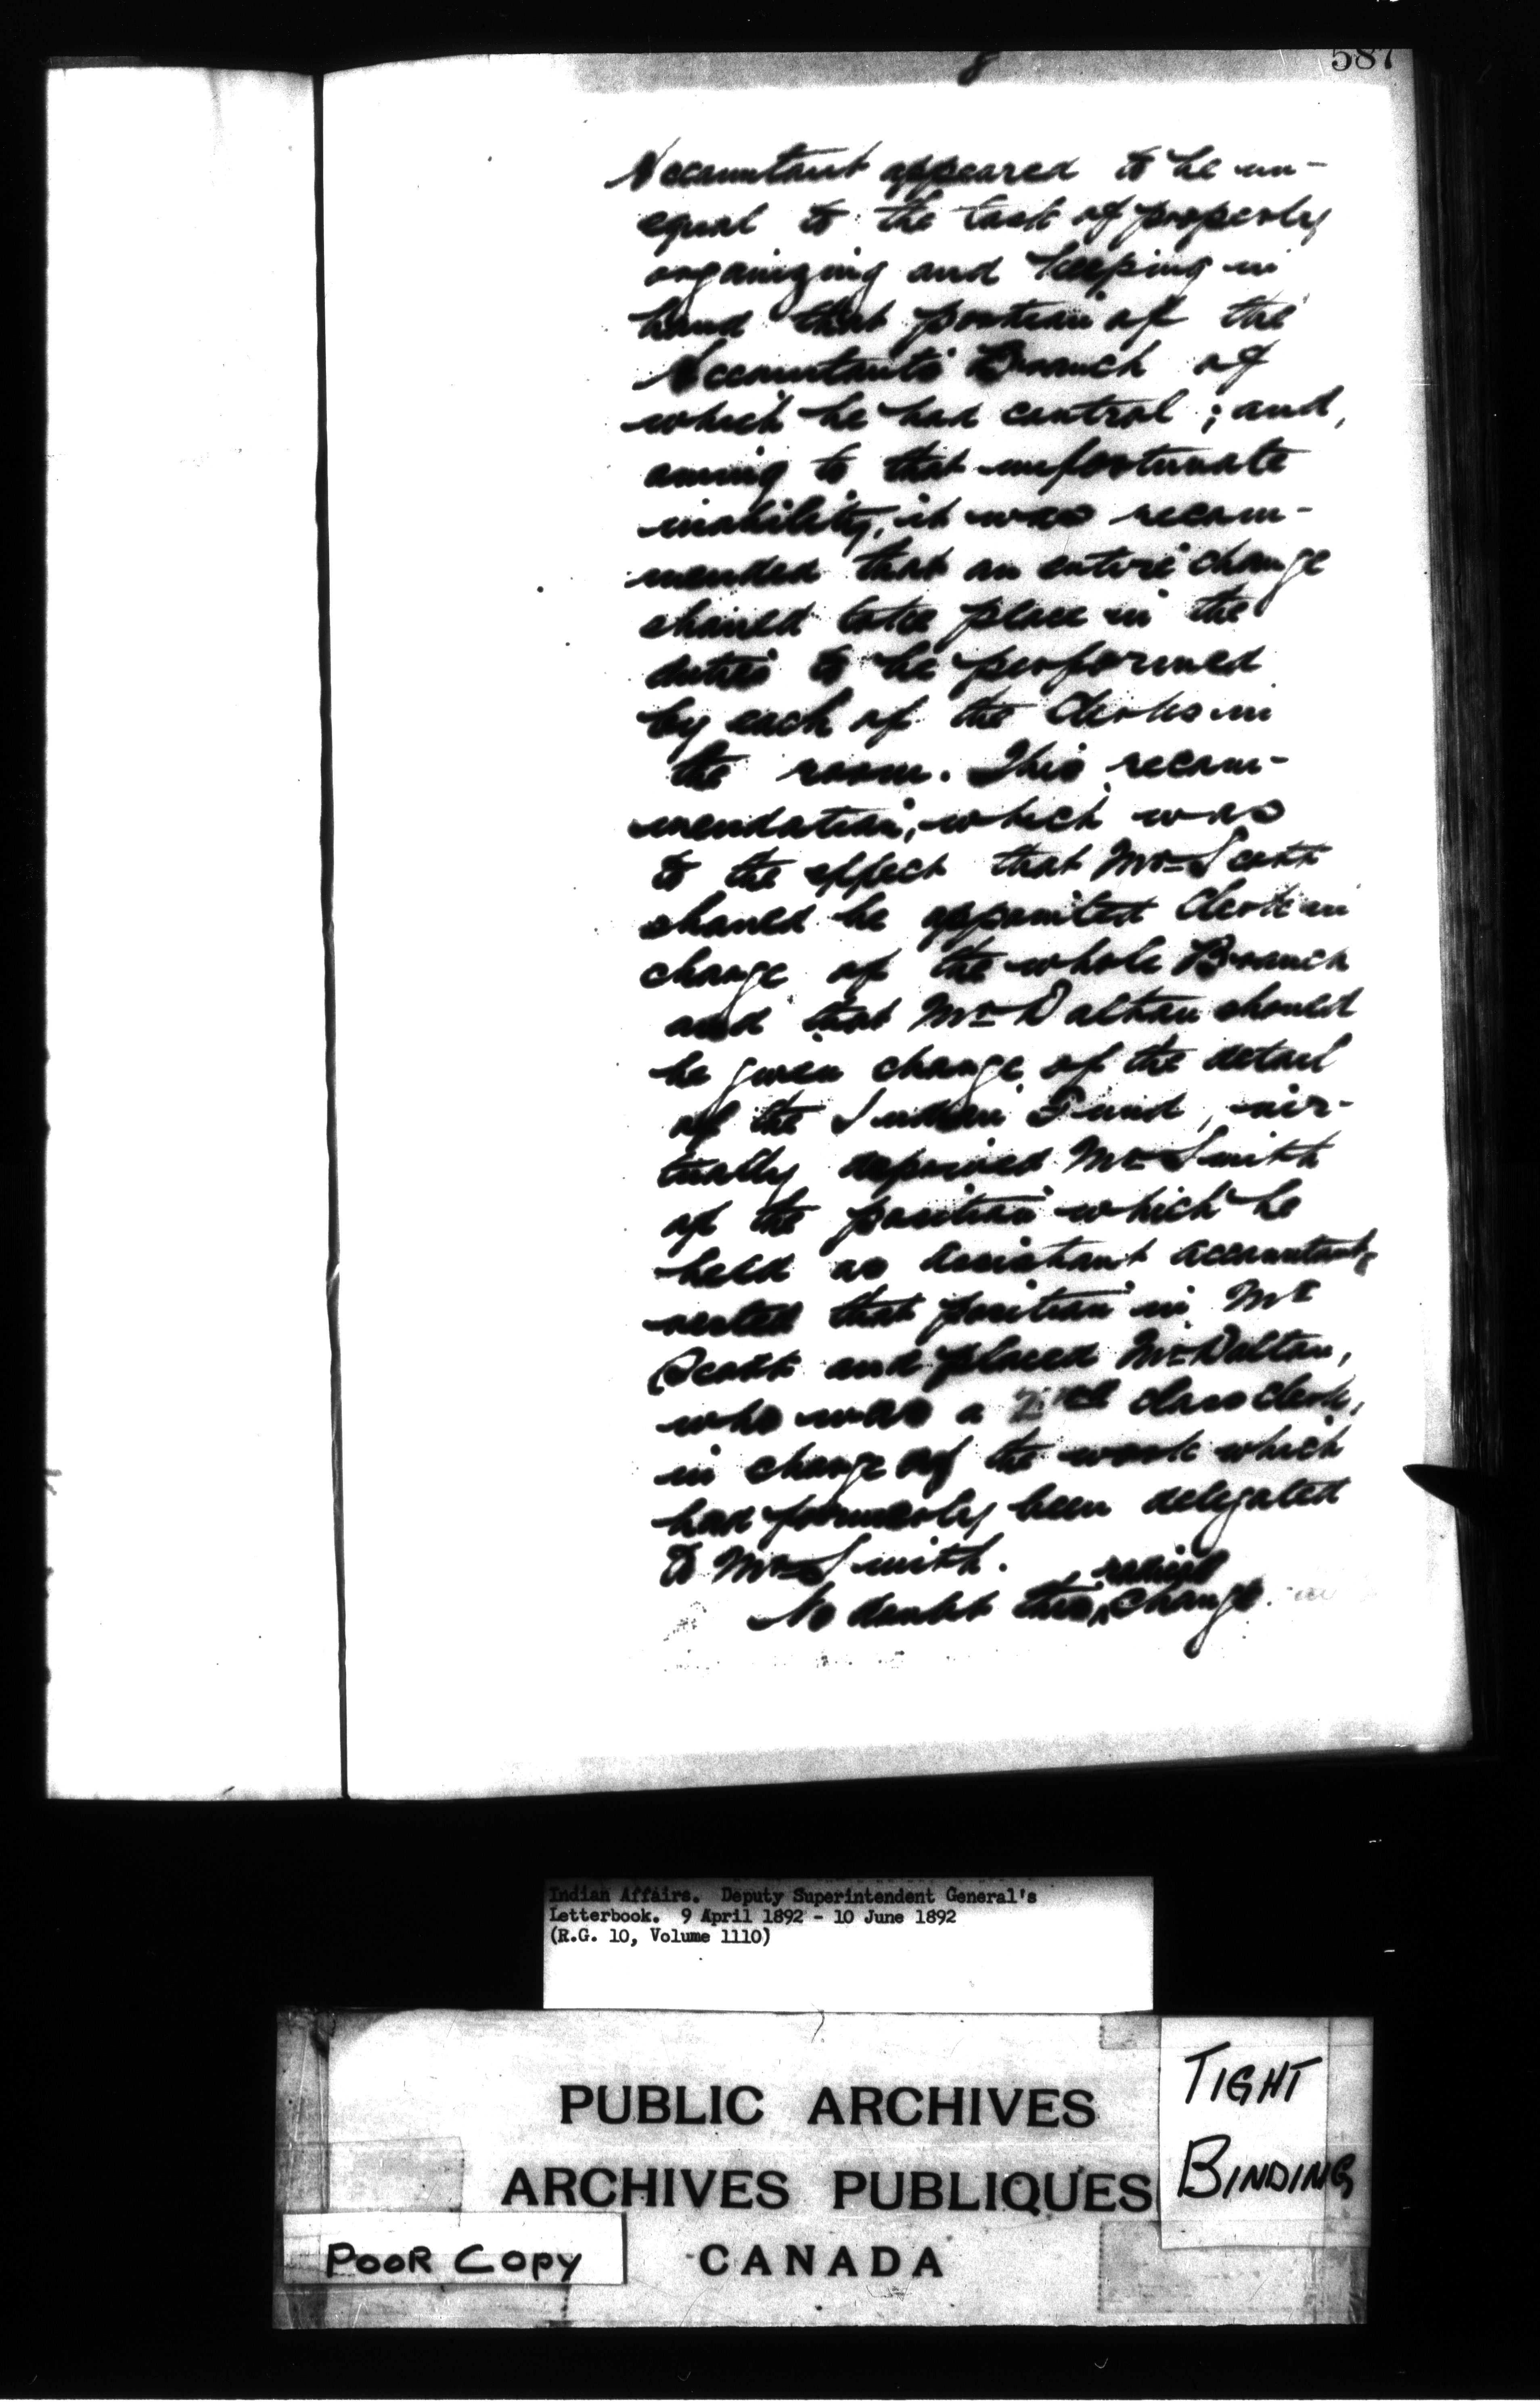 587
8
Accountant appeared to be un-
equal to the task of properly
organizing and keeping in
hand that portion of the
Accountants Branch of
which he had control; and,
owing to that unfortunate
inability, it was recom-
mended that an entire change
should take place in the
duties to be performed
by each of the Clerks in
the room. This recom-
mendation, which was
to the effect that Mr Scott
should be appointed Clerk in
charge of the whole Branch
and that Mr Dalton should
be given charge of the detail
of the Indian Fund, vir-
tually deprived Mr Smith
of the position which he
held as Assistant Accountant,
vested that position in Mr
Scott and placed Mr Dalton,
who was a 2nd class clerk,
in charge of the work which
had formerly been delegated
to Mr Smith.
radical
No doubt this change
Indian Affairs. Deputy Superintendent General's
Letterbook. 9 April 1892 - 10 June 1892
(R.G. 10, Volume 1110)
PUBLIC ARCHIVES
ARCHIVES PUBLIQUES
CANADA
TIGHT
BINDING
POOR COPY